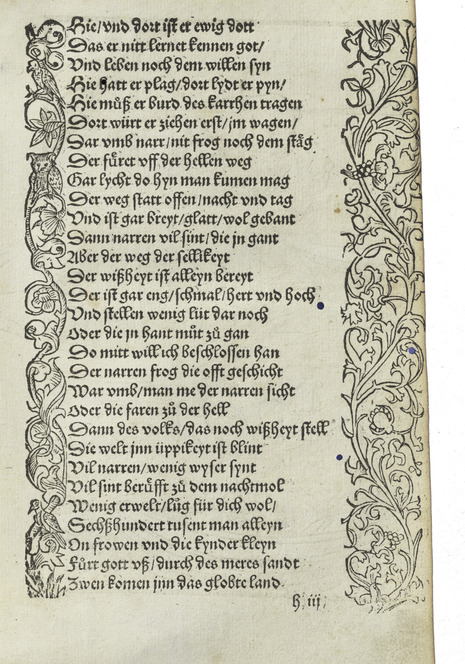 Hie/vnd dort ist er ewig dott
Das er nitt lernet kennen got/
Vnd leben noch dem willen syn
Hie hatt er plag/dort lydt er pyn/
Hie muͦß er burd des karrhen tragen
Dort würt er ziehen erst/jm wagen/
Dar vmb narr/nit frog noch dem staͤg
Der fuͤret vff der hellen weg
Gar lycht do hyn man kumen mag
Der weg statt offen/nacht vnd tag
Vnd ist gar breyt/glatt/wol gebant
Dann narren vil sint/die jn gant
Aber der weg der sellikeyt
Der wißheyt ist alleyn bereyt
Der ist gar eng/schmal/hert vnd hoch
Vnd stellen wenig lüt dar noch
Oder die jn hant muͦt zuͦ gan
Do mitt will ich beschlossen han
Der narren frog die offt geschicht
War vmb/man me der narren sicht
Oder die faren zuͦ der hell
Dann des volks/das noch wißheyt stell
Die welt jnn üppikeyt ist blint
Vil narren/wenig wyser synt
Vil sint beruͤfft zuͦ dem nachtmol
Wenig erwelt/luͦg für dich wol/
Sechßhundert tusent man alleyn
On frowen vnd die kynder kleyn
Fuͤrt gott vß/durch des meres sandt
Zwen komen jnn das globte land.
h iij